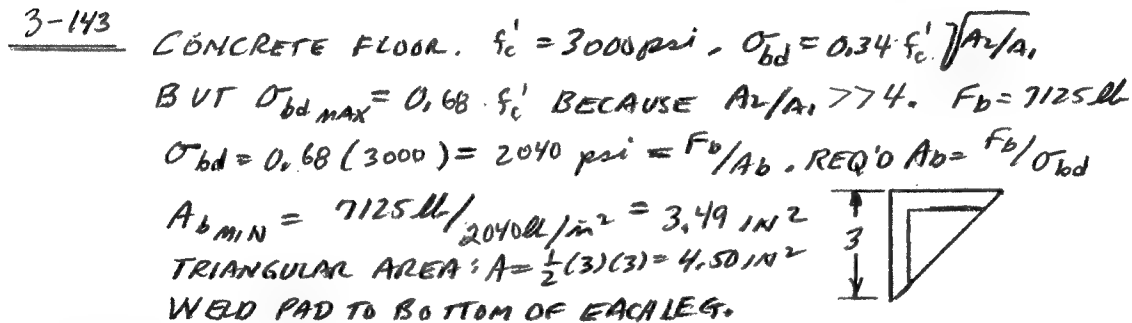 3-143 CONCRETE FLOOR. f'c = 3000 psi. σbd = 0.34 f'c √A2/A1
BUT σbd MAX = 0.68 f'c BECAUSE A2/A1 >> 4. Fb = 7125 lb
σbd = 0.68 (3000) = 2040 psi = Fb/Ab. REQ'D Ab = Fb/σbd
Ab MIN = 7125 lb/2040 lb/in² = 3.49 IN²
TRIANGULAR AREA: A = 1/2 (3)(3) = 4.50 IN²
WELD PAD TO BOTTOM OF EACH LEG.
3